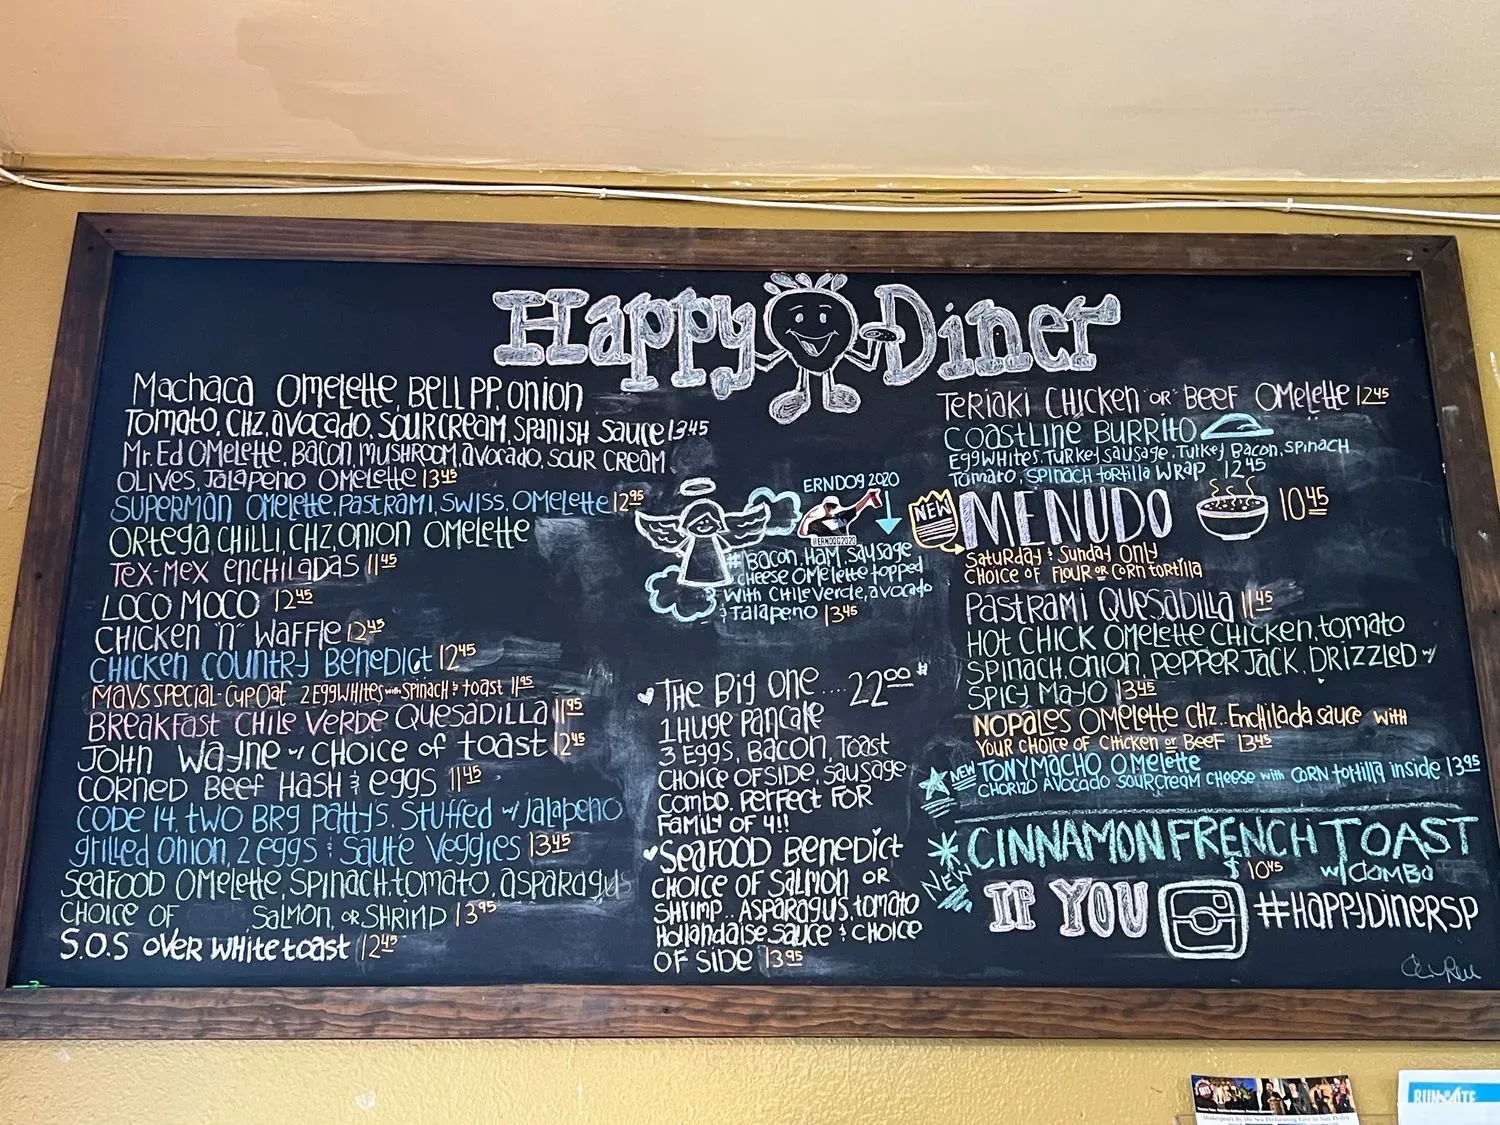 Happy Diner
Machaca Omelette, Bell PP, Onion
Tomato, CHZ, avocado, Sour Cream, Spanish Sauce 13.45
Mr. Ed Omelette, Bacon, Mushroom, avocado, Sour Cream
Olives, Jalapeno Omelette 13.45
Superman Omelette, Pastrami, Swiss, Omelette 12.95
Ortega, Chilli, CHZ, Onion Omelette
Tex-Mex Enchiladas 11.45
Loco Moco 12.45
Chicken "n" Waffle 12.45
Chicken Country Benedict 12.45
Mavs Special - Cup Oat 2 Egg Whites with Spinach & toast 11.95
Breakfast Chile Verde Quesadilla 11.95
John Wayne w/ Choice of toast 12.45
Corned Beef Hash & eggs 11.45
Code 14. two BRG Pattys, Stuffed w/ Jalapeno
grilled Onion, 2 eggs & Saute Veggies 13.45
Seafood Omelette, Spinach, tomato, asparagus
Choice of Salmon, or Shrind 13.95
S.O.S over White toast 12.45
ERNDOG 2020
#ERNDOG2020
# Bacon, Ham, Sausage
cheese Omelette topped
with Chile Verde, avocado
& Jalapeno 13.45
The Big One .... 22.00 #
1 Huge Pancake
3 Eggs, Bacon, Toast
Choice of Side, Sausage
Combo. Perfect For
Family of 4!!
Seafood Benedict
Choice of Salmon or
Shrimp.. Asparagus, tomato
Hollandaise Sauce & Choice
of Side 13.95
Teriaki Chicken "or" Beef Omelette 12.45
Coastline Burrito
Egg Whites, Turkey Sausage, Turkey Bacon, Spinach
Tomato, Spinach tortilla Wrap 12.45
NEW
MENUDO 10.45
Saturday & Sunday Only
Choice of Flour or Corn tortilla
Pastrami Quesadilla 11.45
Hot Chick Omelette Chicken, tomato
Spinach, Onion, Pepper Jack, Drizzled w/
Spicy Mayo 13.45
Nopales Omelette CHZ.. Enchilada sauce with
Your choice of Chicken or Beef 13.45
NEW Tony Macho Omelette
Chorizo Avocado Sour Cream Cheese with Corn tortilla inside 13.95
NEW
Cinnamon French Toast
$10.45 w/ Combo
IF YOU #HappyDinerSP